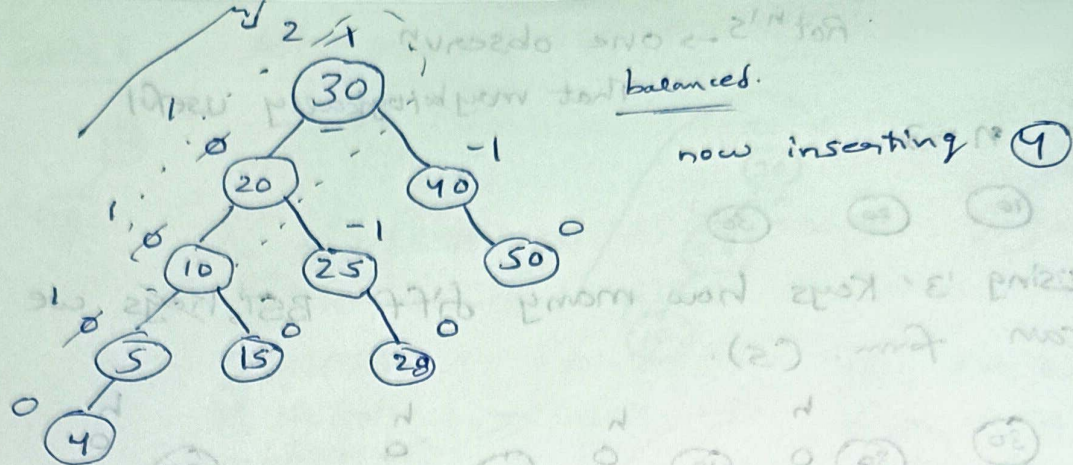 2 1
30
balanced.
now inserting 4
1 0
20
-1
40
1 0
10
-1
25
0
50
1 0
5
0
15
0
28
0
4